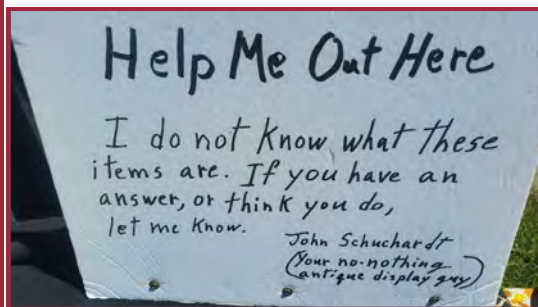 Help Me Out Here
I do not know what these
items are. If you have an
answer, or think you do,
let me know.
John Schuchardt
(Your no-nothing
antique display guy)